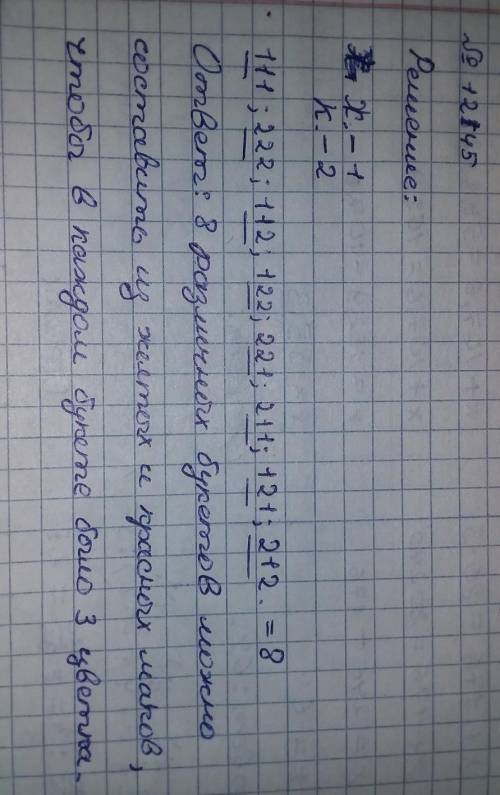 № 12145
Решение:
Ж. – 1
К. – 2
111; 222; 112; 122; 221; 211; 121; 212. = 8
Ответ: 8 различных букетов можно
составить из желтых и красных маков,
чтобы в каждом букете было 3 цветка.